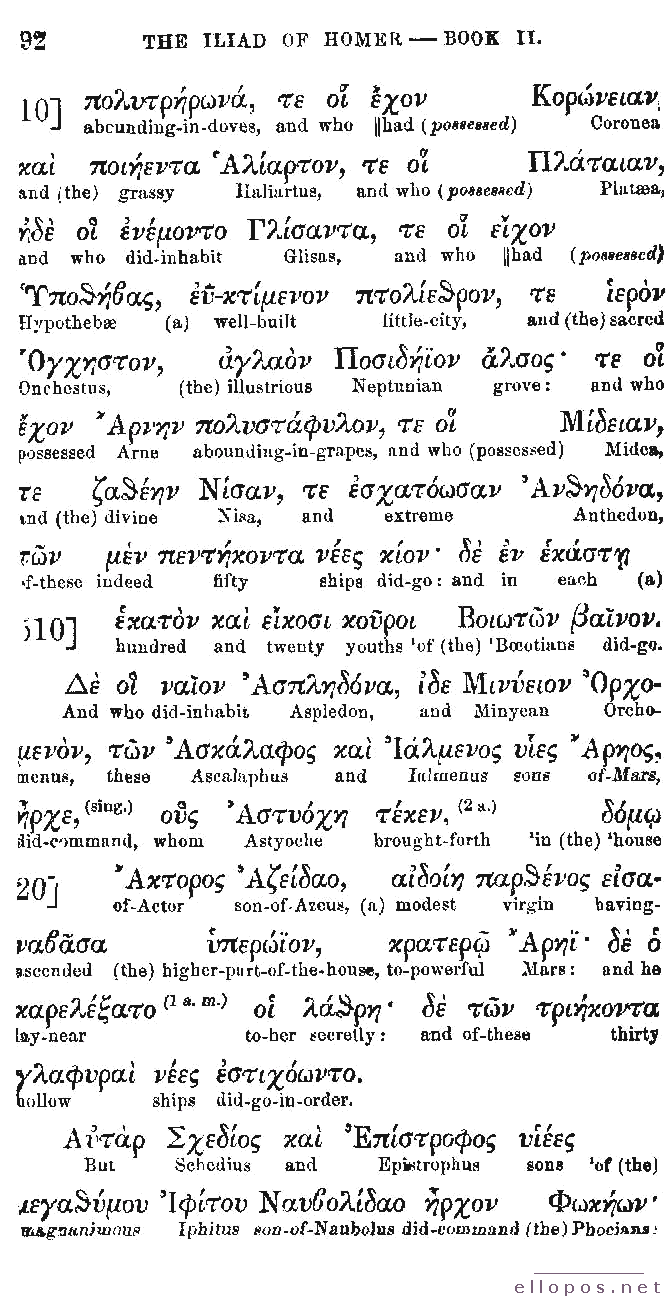 92 THE ILIAD OF HOMER — BOOK II.
10] πολυτρήρωνά, τε οἳ ἔχον Κορώνειαν,
abounding-in-doves, and who ||had (possessed) Coronea
καὶ ποιήεντα Ἁλίαρτον, τε οἳ Πλάταιαν,
and (the) grassy Haliartus, and who (possessed) Platæa,
ἠδὲ οἳ ἐνέμοντο Γλίσαντα, τε οἳ εἶχον
and who did-inhabit Glisas, and who ||had (possessed)
Ὑποθήβας, ἐΰ-κτίμενον πτολίεθρον, τε ἱερὸν
Hypothebæ (a) well-built little-city, and (the) sacred
Ὀγχηστον, ἀγλαὸν Ποσιδήϊον ἄλσος· τε οἳ
Onchestus, (the) illustrious Neptunian grove: and who
ἔχον Ἄρνην πολυστάφυλον, τε οἳ Μίδειαν,
possessed Arne abounding-in-grapes, and who (possessed) Midea,
τε ζαθέην Νίσαν, τε ἐσχατόωσαν Ἀνθηδόνα,
and (the) divine Nisa, and extreme Anthedon,
τῶν μὲν πεντήκοντα νέες κίον· δὲ ἐν ἑκάστῃ
of-these indeed fifty ships did-go: and in each (a)
510] ἑκατὸν καὶ εἴκοσι κοῦροι Βοιωτῶν βαῖνον.
hundred and twenty youths 'of (the) 'Bœotians did-go.
Δὲ οἳ ναῖον Ἀσπληδόνα, ἰδε Μινύειον Ὀρχο-
And who did-inhabit Aspledon, and Minyean Orcho-
μενὸν, τῶν Ἀσκάλαφος καὶ Ἰάλμενος υἷες Ἄρηος,
menus, these Ascalaphus and Ialmenus sons of-Mars,
ἦρχε, (sing.) οὓς Ἀστυόχη τέκεν, (2 a.) δόμῳ
did-command, whom Astyoche brought-forth 'in (the) 'house
20] Ἄκτορος Ἀζείδαο, αἰδοίη παρθένος εἰσα-
of-Actor son-of-Azeus, (a) modest virgin having-
ναβᾶσα ὑπερώϊον, κρατερῷ Ἄρηϊ· δὲ ὁ
ascended (the) higher-part-of-the-house, to-powerful Mars: and he
καρελέξατο (1 a. m.) οἱ λάθρη· δὲ τῶν τριήκοντα
lay-near to-her secretly: and of-these thirty
γλαφυραὶ νέες ἐστιχόωντο.
hollow ships did-go-in-order.
Αὐτὰρ Σχεδίος καὶ Ἐπίστροφος υἱέες
But Schedius and Epistrophus sons 'of (the)
μεγαθύμου Ἰφίτου Ναυβολίδαο ἦρχον Φωκήων·
magnanimous Iphitus son-of-Naubolus did-command (the) Phocians:
ellopos.net